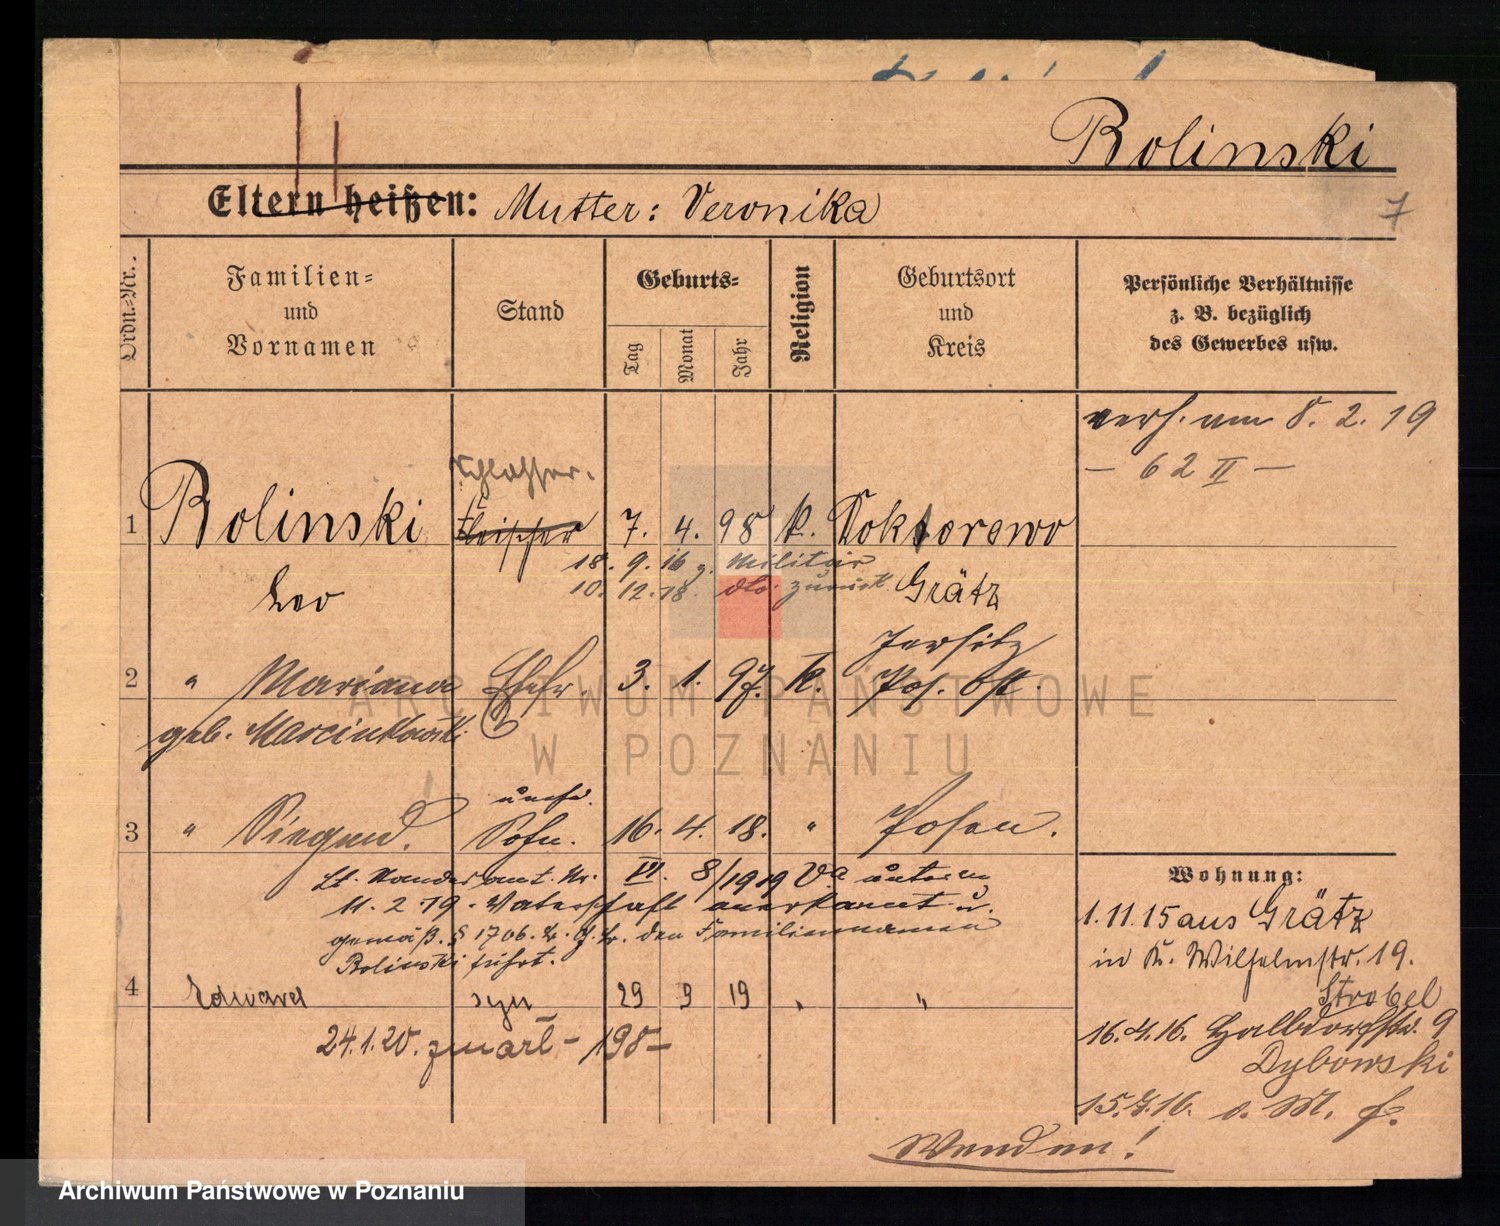 Rolinski
7
Eltern heißen: Mutter: Veronika
Ordn.-Nr.
Familien-
und
Vornamen
Stand
Geburts-
Tag
Monat
Jahr
Religion
Geburtsort
und
Kreis
Persönliche Verhältnisse
z. B. bezüglich
des Gewerbes usw.
verh. am 8. 2. 19
— 62 II —
Schlosser.
1 Rolinski Fleischer 7. 4. 98 k. Doktorowo
18. 9. 16 z. Militär
10. 12. 18. dto. zurück
Leo Grätz
Jersitz
2 " Mariana Ehefr. 3. 1. 97. k. Pos. Ost.
geb. Marcinkowski
unehel.
3 " Sohn. 16. 4. 18. " Posen.
Lt. Standesamt. Nr. VI. 8/1919 Va unterm
11. 2 19. Vaterschaft anerkannt u.
gemäß. § 1706. B. G. B. den Familiennamen
Rolinski führt.
4 Edward syn 29 9 19 " "
24.1.20. zmarł - 198-
Wohnung:
1. 11. 15 aus Grätz
in K. Wilhelmstr. 19.
Strobel
16. 4. 16. Halbdorfstr. 9
Dybowski
15. 7. 16. o. M. f.
Wenden!
ARCHIWUM PAŃSTWOWE
W POZNANIU
Archiwum Państwowe w Poznaniu